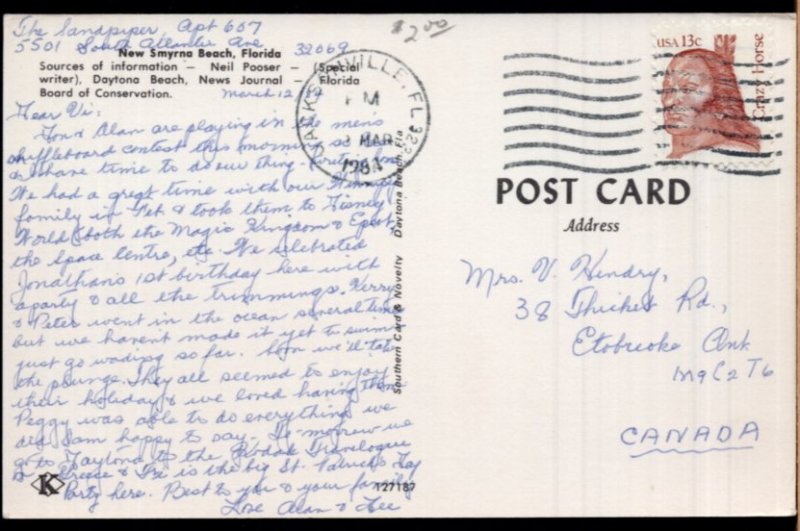 The Sandpiper, Apt 607
5501 South Atlantic Ave 32069
$2.00
New Smyrna Beach, Florida
Sources of information – Neil Pooser – (Special
writer), Daytona Beach, News Journal – Florida
Board of Conservation.
March 12/84
Dear Vi:
Jon & Alan are playing in the men's
shuffleboard contest this morning so
I have time to do our thing
We had a great time with our Winnipeg
family in Feb & took them to Disney
World (both the Magic Kingdom & Epcot,
the Space Centre, etc. We celebrated
Jonathan's 1st birthday here with
a party & all the trimmings. Kerry
& Peter went in the ocean several times
but we havent made it yet to swim
just go wading so far. Soon we'll take
the plunge. They all seemed to enjoy
their holiday & we loved having them
Peggy was able to do everything we
did I am happy to say – To-morrow we
go to Daytona to the Kodak Travelogue
on Greece & Fri is the big St. Patrick's Day
Party here. Best to you & your family
Love Alan & Lee
K
127187
Southern Card & Novelty Daytona Beach, Fla
JACKSONVILLE, FL
PM
MAR
1984
USA 13c
Crazy Horse
POST CARD
Address
Mrs. V. Hendry,
38 Thicket Rd.,
Etobicoke Ont
M9C2T6
CANADA